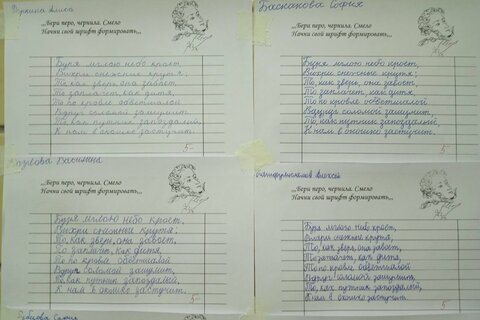 Фокина Алиса
...Бери перо, чернила. Смело
Начни свой шрифт формировать...
Буря мглою небо кроет,
Вихри снежные крутя;
То, как зверь, она завоет,
То заплачет, как дитя,
То по кровле обветшалой
Вдруг соломой зашумит,
То, как путник запоздалый,
К нам в окошко застучит.
5
Баскакова София
...Бери перо, чернила. Смело
Начни свой шрифт формировать...
Буря мглою небо кроет,
Вихри снежные крутя;
То, как зверь, она завоет,
То заплачет, как дитя,
То по кровле обветшалой
Вдруг соломой зашумит,
То, как путник запоздалый,
К нам в окошко застучит.
5
Василина
...Бери перо, чернила. Смело
Начни свой шрифт формировать...
Буря мглою небо кроет,
Вихри снежные крутя:
То, как зверь, она завоет,
То заплачет, как дитя,
То по кровле обветшалой
Вдруг соломой зашумит,
То, как путник запоздалый,
К нам в окошко застучит.
5
Алексей
...Бери перо, чернила. Смело
Начни свой шрифт формировать...
Буря мглою небо кроет,
Вихри снежные крутя,
То, как зверь, она завоет,
То заплачет, как дитя,
То по кровле обветшалой
Вдруг соломой зашумит,
То, как путник запоздалый,
К нам в окошко застучит.
5